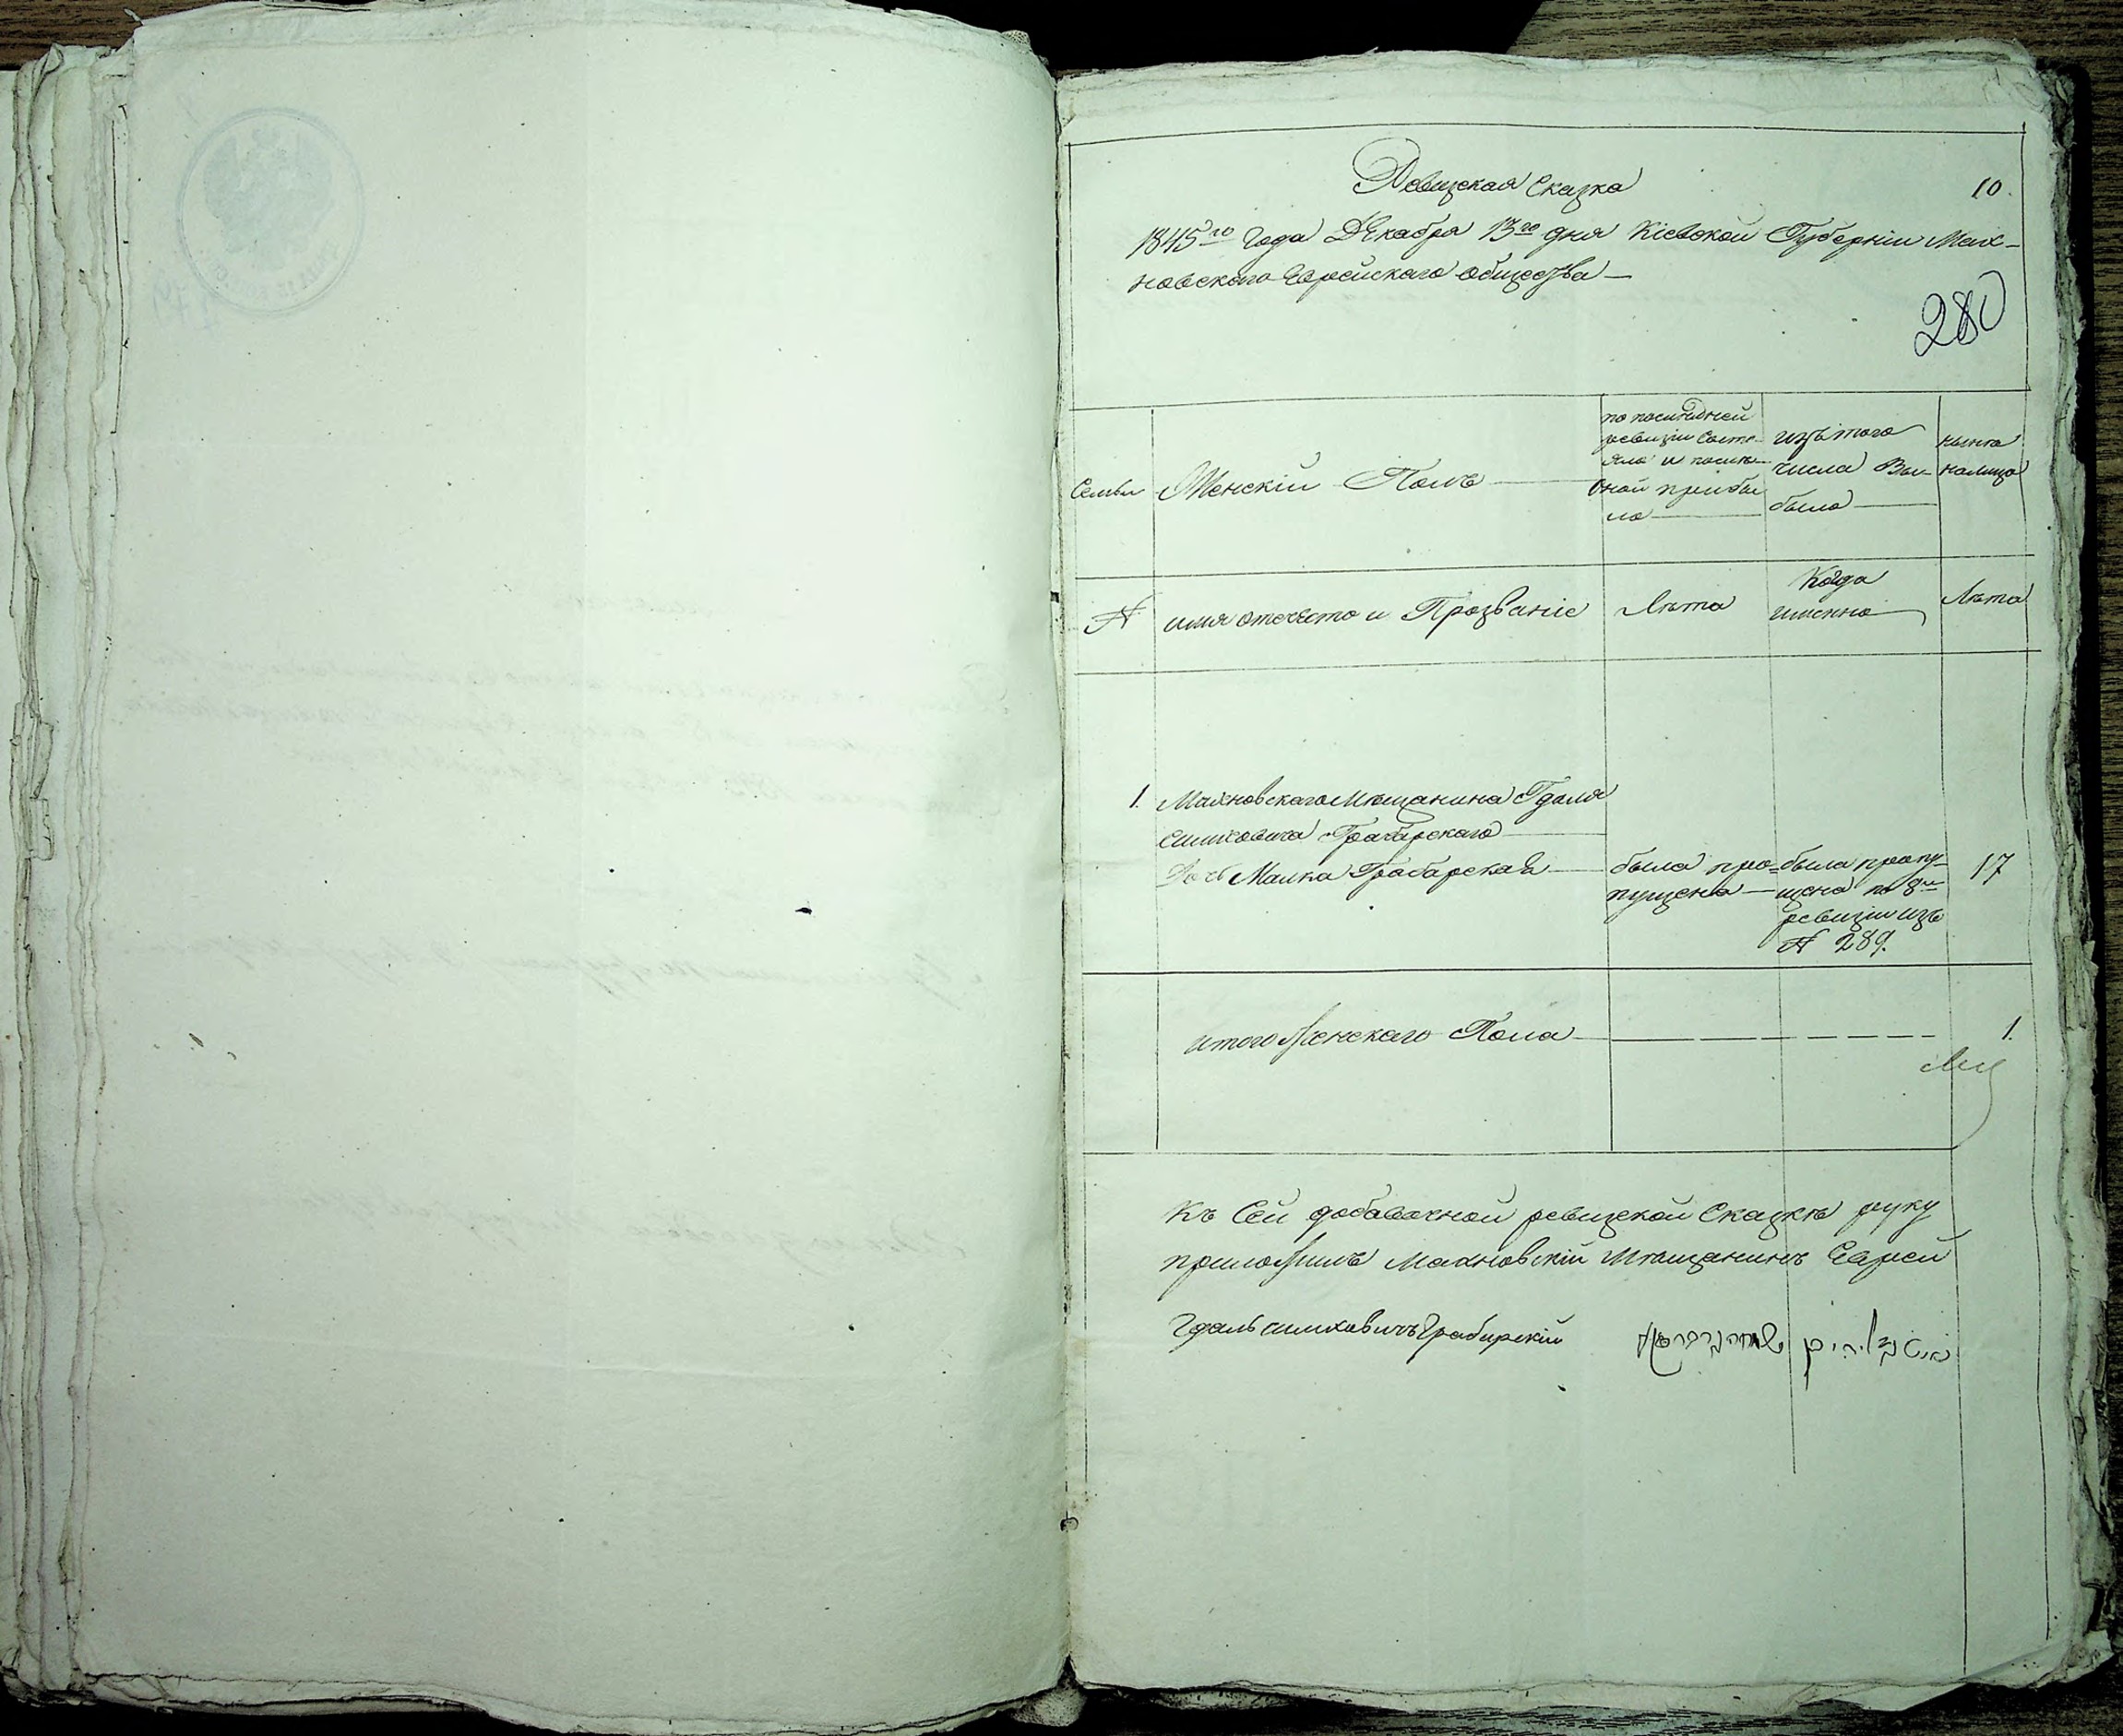 Ревизская Сказка
10.
1845го Года Декабря 13го дня Кіевской Губерніи Мах-
новскаго Еврейскаго общества
280
Семьи
Женскій Полъ
по последней
ревизіи состо-
яло и после
оной прибы
ло
изъ того
числа Вы-
было
ныне
налицо
№
имя отечество и Прозваніе
Лета
Когда
именно
Лета
1. Махновскаго Мещанина Гдаля
Симховича Грабарскаго
Дочь Малка Грабарская
была про-
пущена
была пропу-
щена по 8й
ревизіи изъ
№ 289.
17
итого Женскаго Пола
1.
Къ Сей добавочной ревизской Сказке руку
приложилъ Махновскій Мещанинъ Еврей
Гдаль Симховичъ Грабарскій